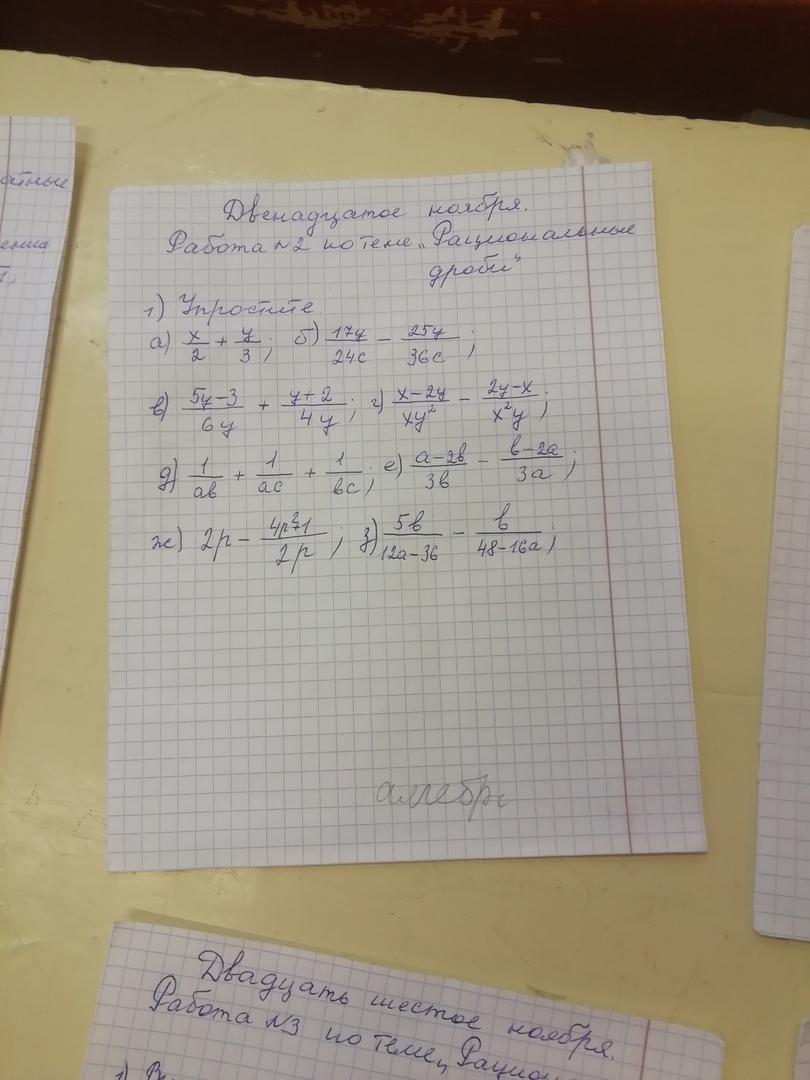 атные
Двенадцатое ноября.
Работа №2 по теме „Рациональные
дроби"
1) Упростите.
а) x/2 + y/3; б) 17y/24c − 25y/36c;
в) (5y−3)/6y + (y+2)/4y; г) (x−2y)/xy² − (2y−x)/x²y;
д) 1/ab + 1/ac + 1/bc; е) (a−2b)/3b − (b−2a)/3a;
ж) 2p − (4p²+1)/2p; з) 5b/(12a−36) − b/(48−16a);
алгебра
Двадцать шестое ноября.
Работа №3 по теме „Рацион